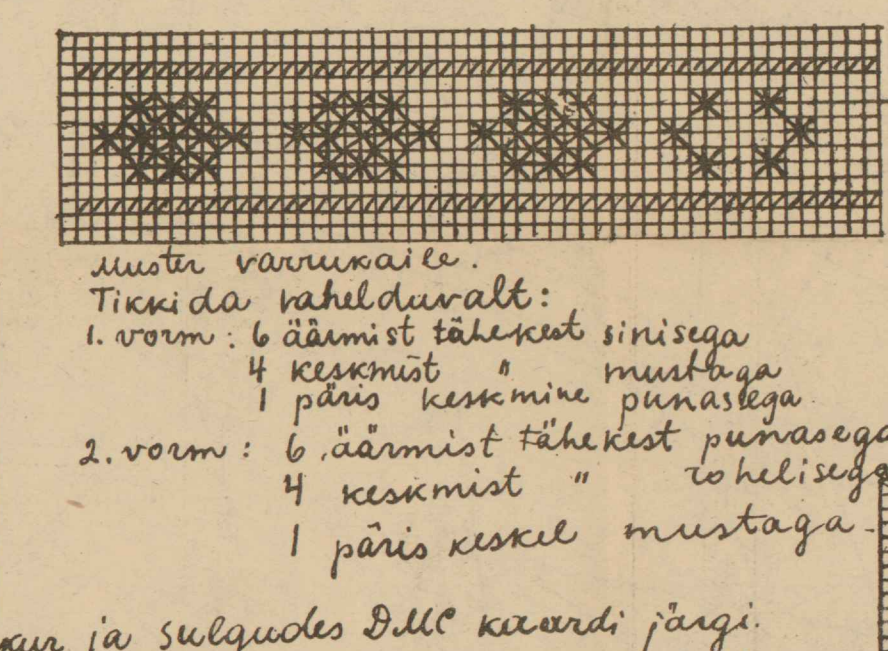 Muster varrukaile.
Tikkida vahelduvalt:
1. vorm: 6 äärmist tähekest sinisega
4 keskmist " mustaga
1 päris keskmine punasega.
2. vorm: 6 äärmist tähekest punasega
4 keskmist " rohelisega
1 päris keskel mustaga.
ja sulgudes DMC kaardi järgi.